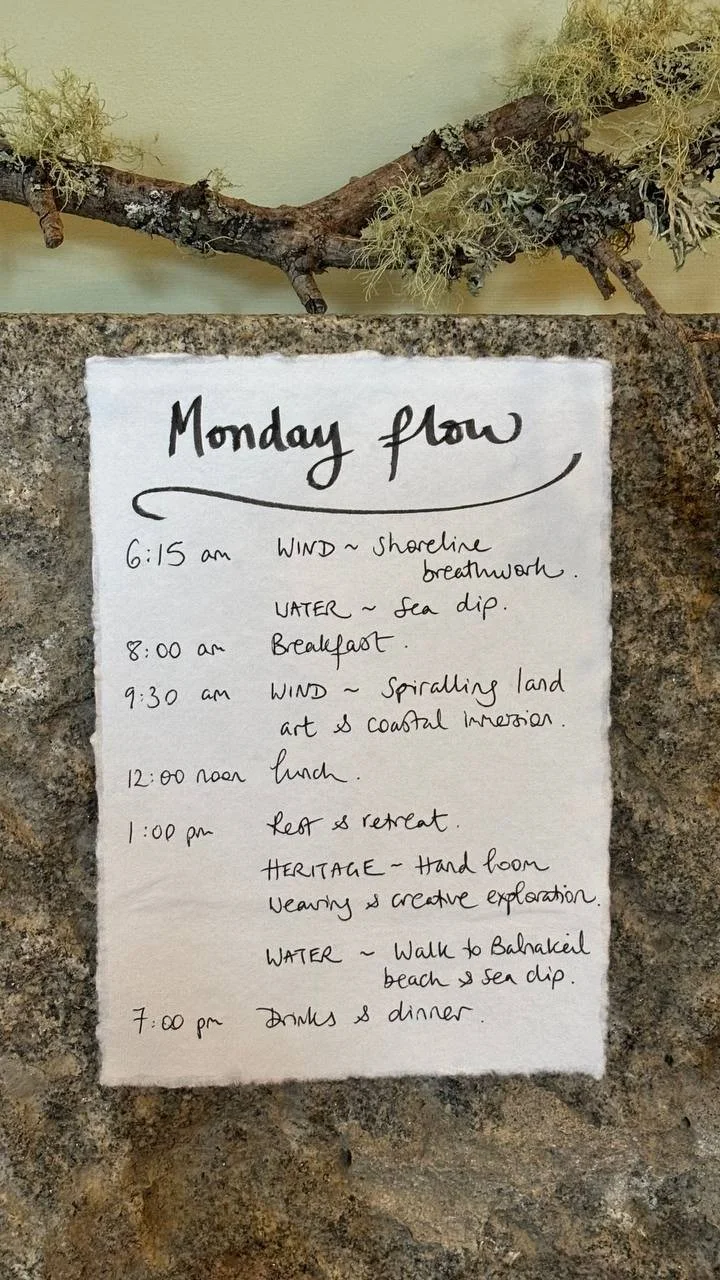 Monday flow
6:15 am WIND ~ Shoreline
breathwork.
WATER ~ Sea dip.
8:00 am Breakfast.
9:30 am WIND ~ Spiralling land
art & coastal immersion.
12:00 noon lunch.
1:00 pm Rest & retreat.
HERITAGE ~ Hand loom
Weaving & creative exploration.
WATER ~ Walk to Balnakeil
beach & sea dip.
7:00 pm Drinks & dinner.